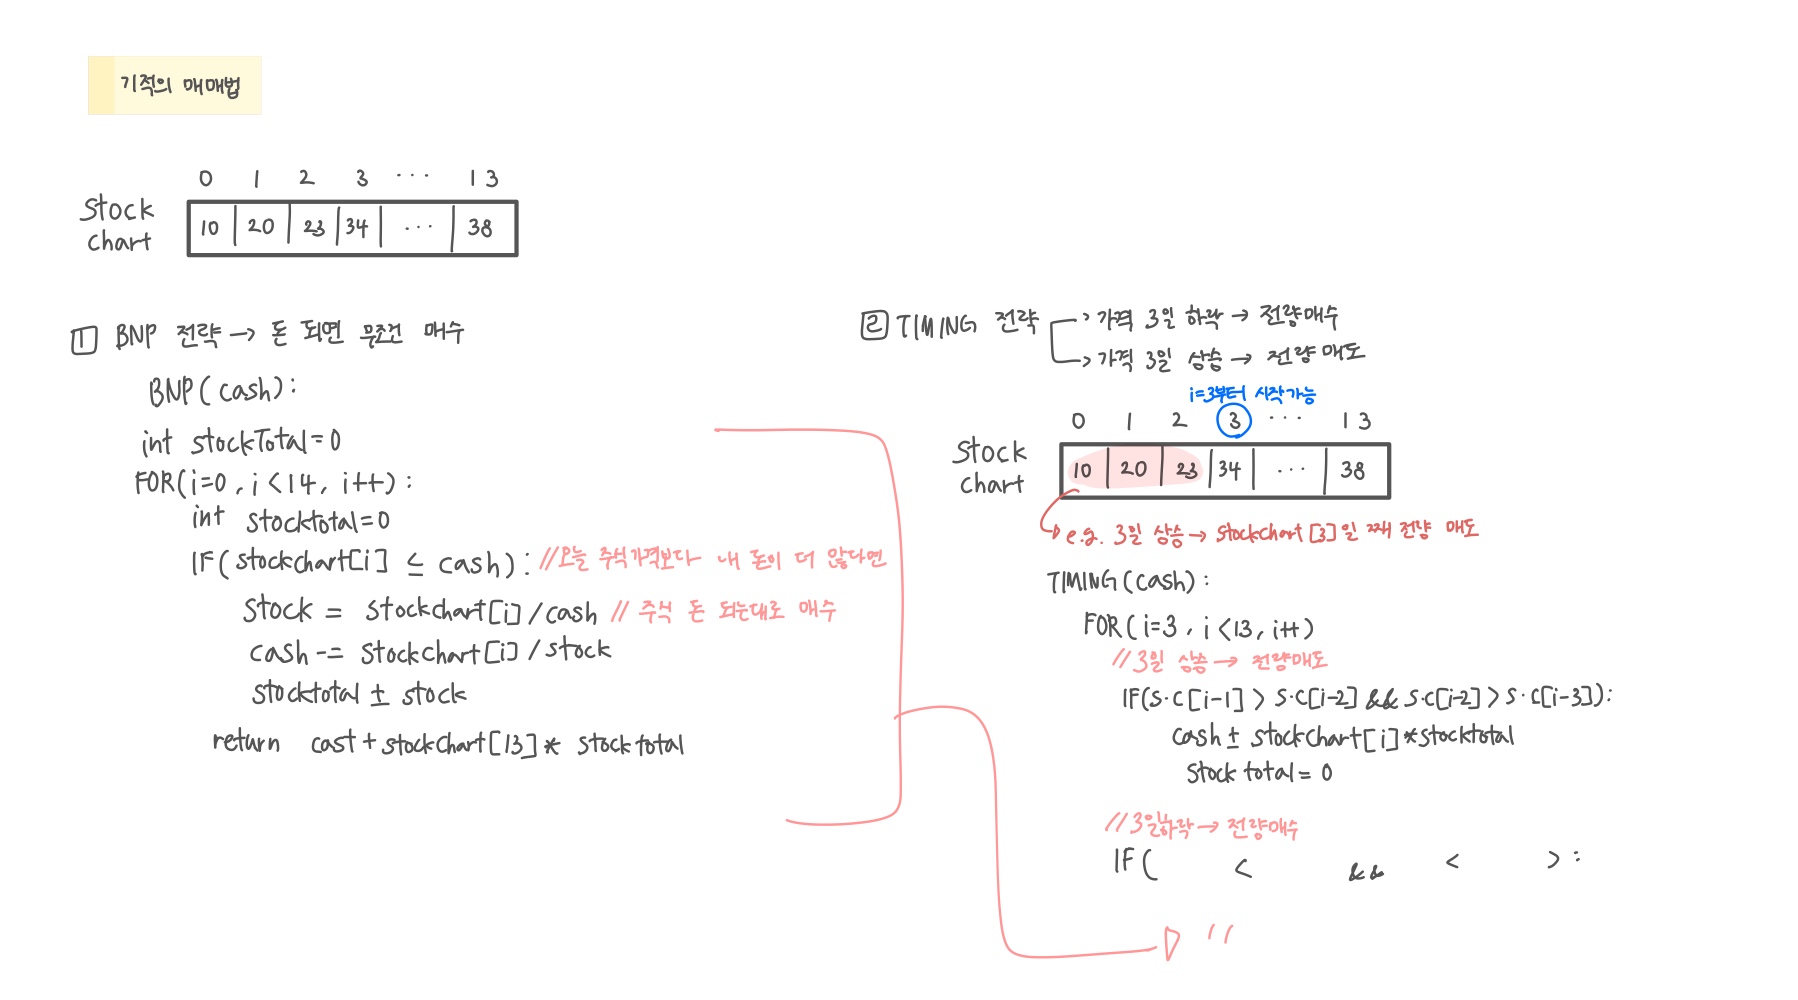 기적의 매매법
0 1 2 3 ... 13
Stock chart
10 20 23 34 ... 38
1 BNP 전략 → 돈 되면 무조건 매수
BNP(cash):
int stockTotal=0
FOR(i=0, i<14, i++):
int stocktotal=0
IF(stockchart[i] ≤ cash): //오늘 주식가격보다 내 돈이 더 많다면
Stock = stockchart[i]/cash // 주식 돈 되는대로 매수
cash -= stockchart[i]/stock
stocktotal ± stock
return cast+stockchart[13]* stocktotal
2 TIMING 전략
→ 가격 3일 하락 → 전량매수
→ 가격 3일 상승 → 전량 매도
i=3부터 시작가능
0 1 2 3 ... 13
Stock chart
10 20 23 34 ... 38
e.g. 3일 상승 → stockchart[3]일 째 전량 매도
TIMING(cash):
FOR(i=3, i<13, i++)
//3일 상승 → 전량매도
IF(s.c[i-1] > s.c[i-2] && s.c[i-2] > s.c[i-3]):
cash ± stockchart[i]*stocktotal
Stock total = 0
//3일하락 → 전량매수
IF( < && < ):
"